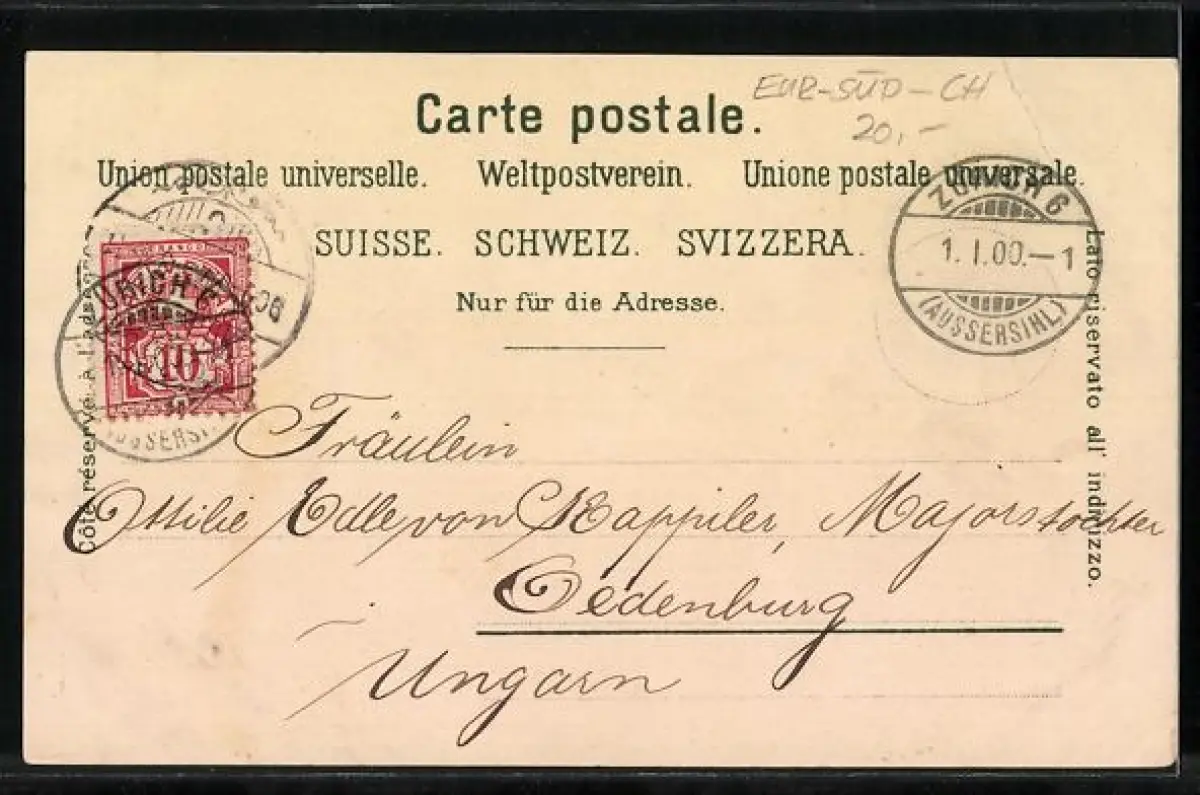 EUR-SÜD-CH
20,-
Carte postale.
Union postale universelle. Weltpostverein. Unione postale universale.
SUISSE. SCHWEIZ. SVIZZERA.
Nur für die Adresse.
ZÜRICH 6
1. I. 00.-1
(AUSSERSIHL)
FRANCO
ZÜRICH 6
10
(AUSSERSIHL)
Côté réservé à l'adresse.
Lato riservato all' indirizzo.
Fräulein
Ottilie Edle von Kappiler, Majorstochter
Oedenburg
Ungarn